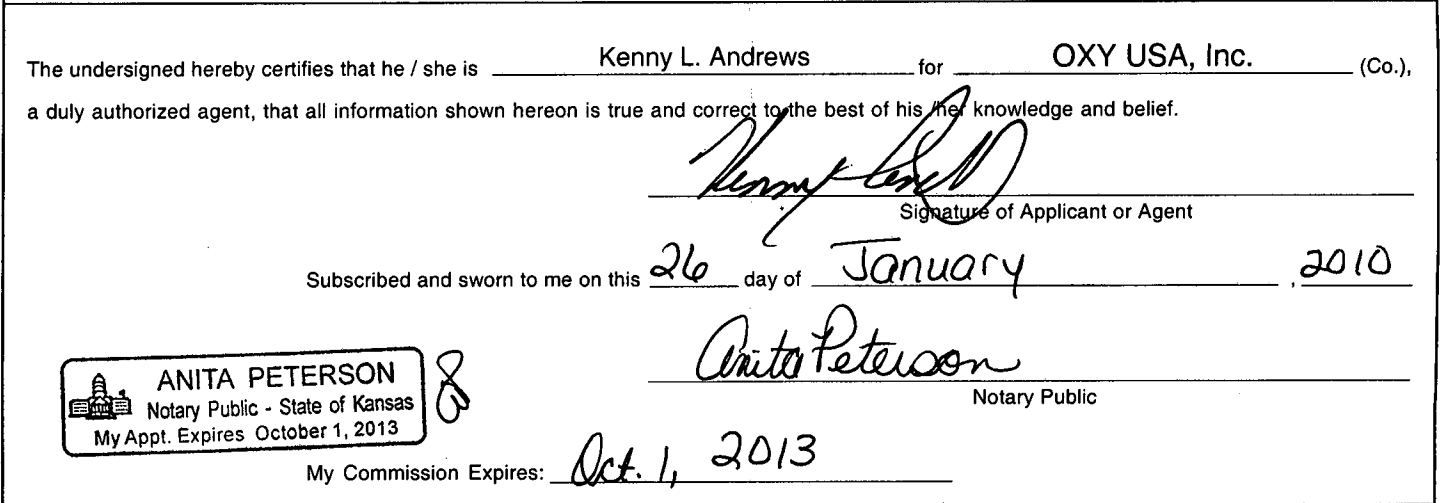 The undersigned hereby certifies that he / she is Kenny L. Andrews for OXY USA, Inc. (Co.),
a duly authorized agent, that all information shown hereon is true and correct to the best of his /her knowledge and belief.
Signature of Applicant or Agent
Subscribed and sworn to me on this 26 day of January , 2010
Anita Peterson
Notary Public
ANITA PETERSON
Notary Public - State of Kansas
My Appt. Expires October 1, 2013
My Commission Expires: Oct. 1, 2013